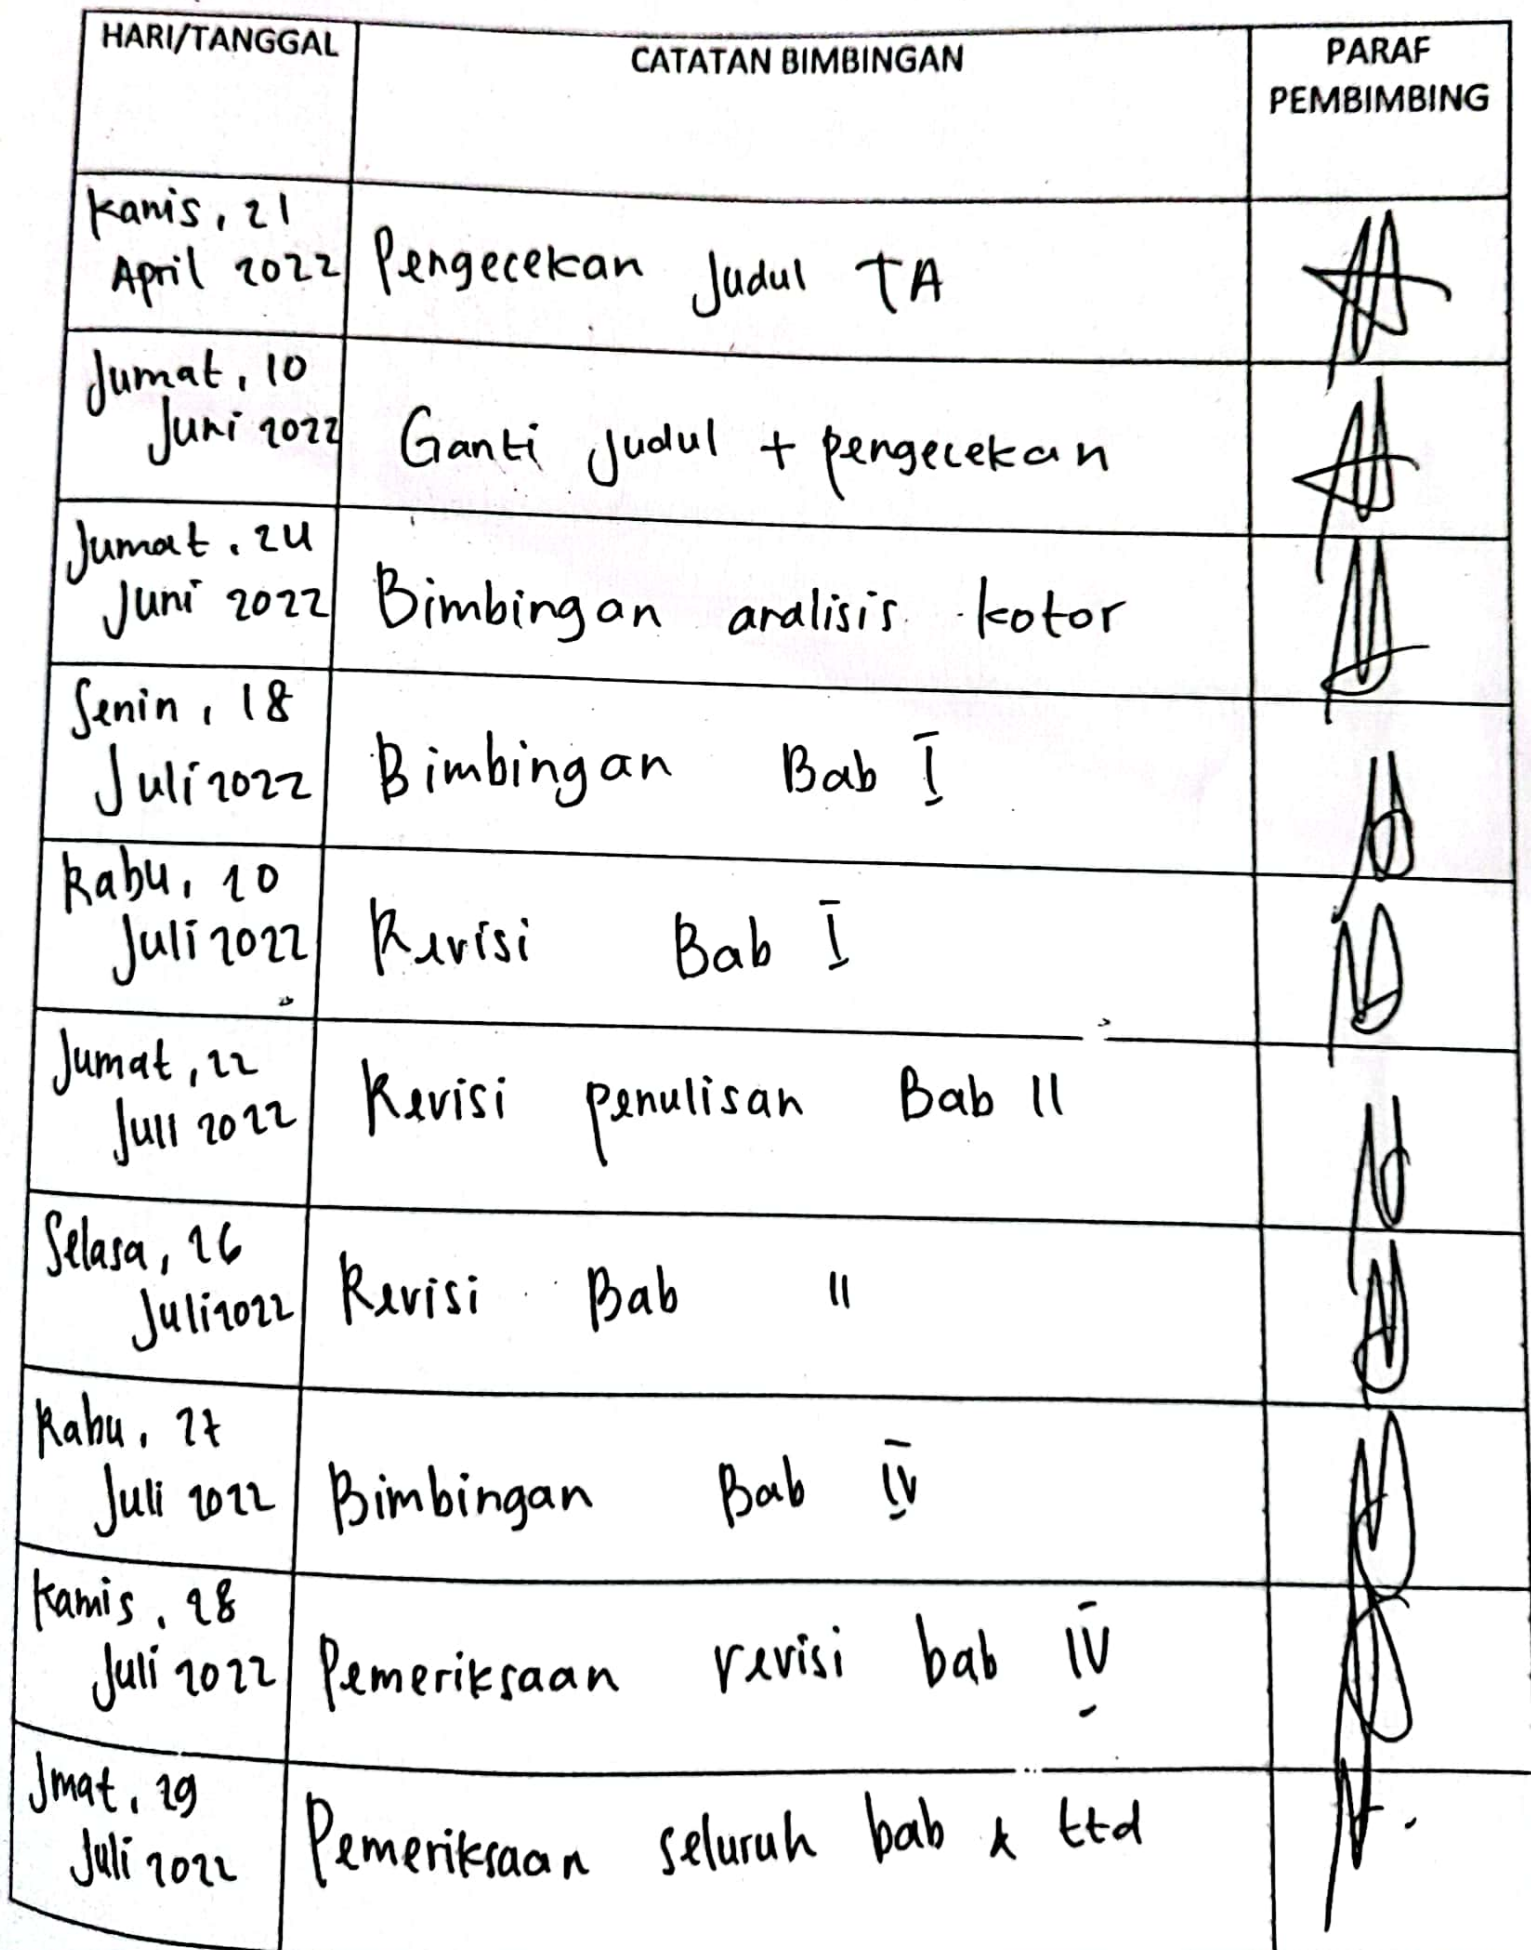 HARI/TANGGAL
CATATAN BIMBINGAN
PARAF
PEMBIMBING
Kamis, 21
April 2022
Pengecekan Judul TA
Jumat, 10
Juni 2022
Ganti Judul + pengecekan
Jumat, 24
Juni 2022
Bimbingan analisis kotor
Senin, 18
Juli 2022
Bimbingan Bab I
Rabu, 20
Juli 2022
Revisi Bab I
Jumat, 22
Juli 2022
Revisi penulisan Bab II
Selasa, 26
Juli 2022
Revisi Bab II
Rabu, 27
Juli 2022
Bimbingan Bab IV
Kamis, 28
Juli 2022
Pemeriksaan revisi bab IV
Jmat, 29
Juli 2022
Pemeriksaan seluruh bab & ttd